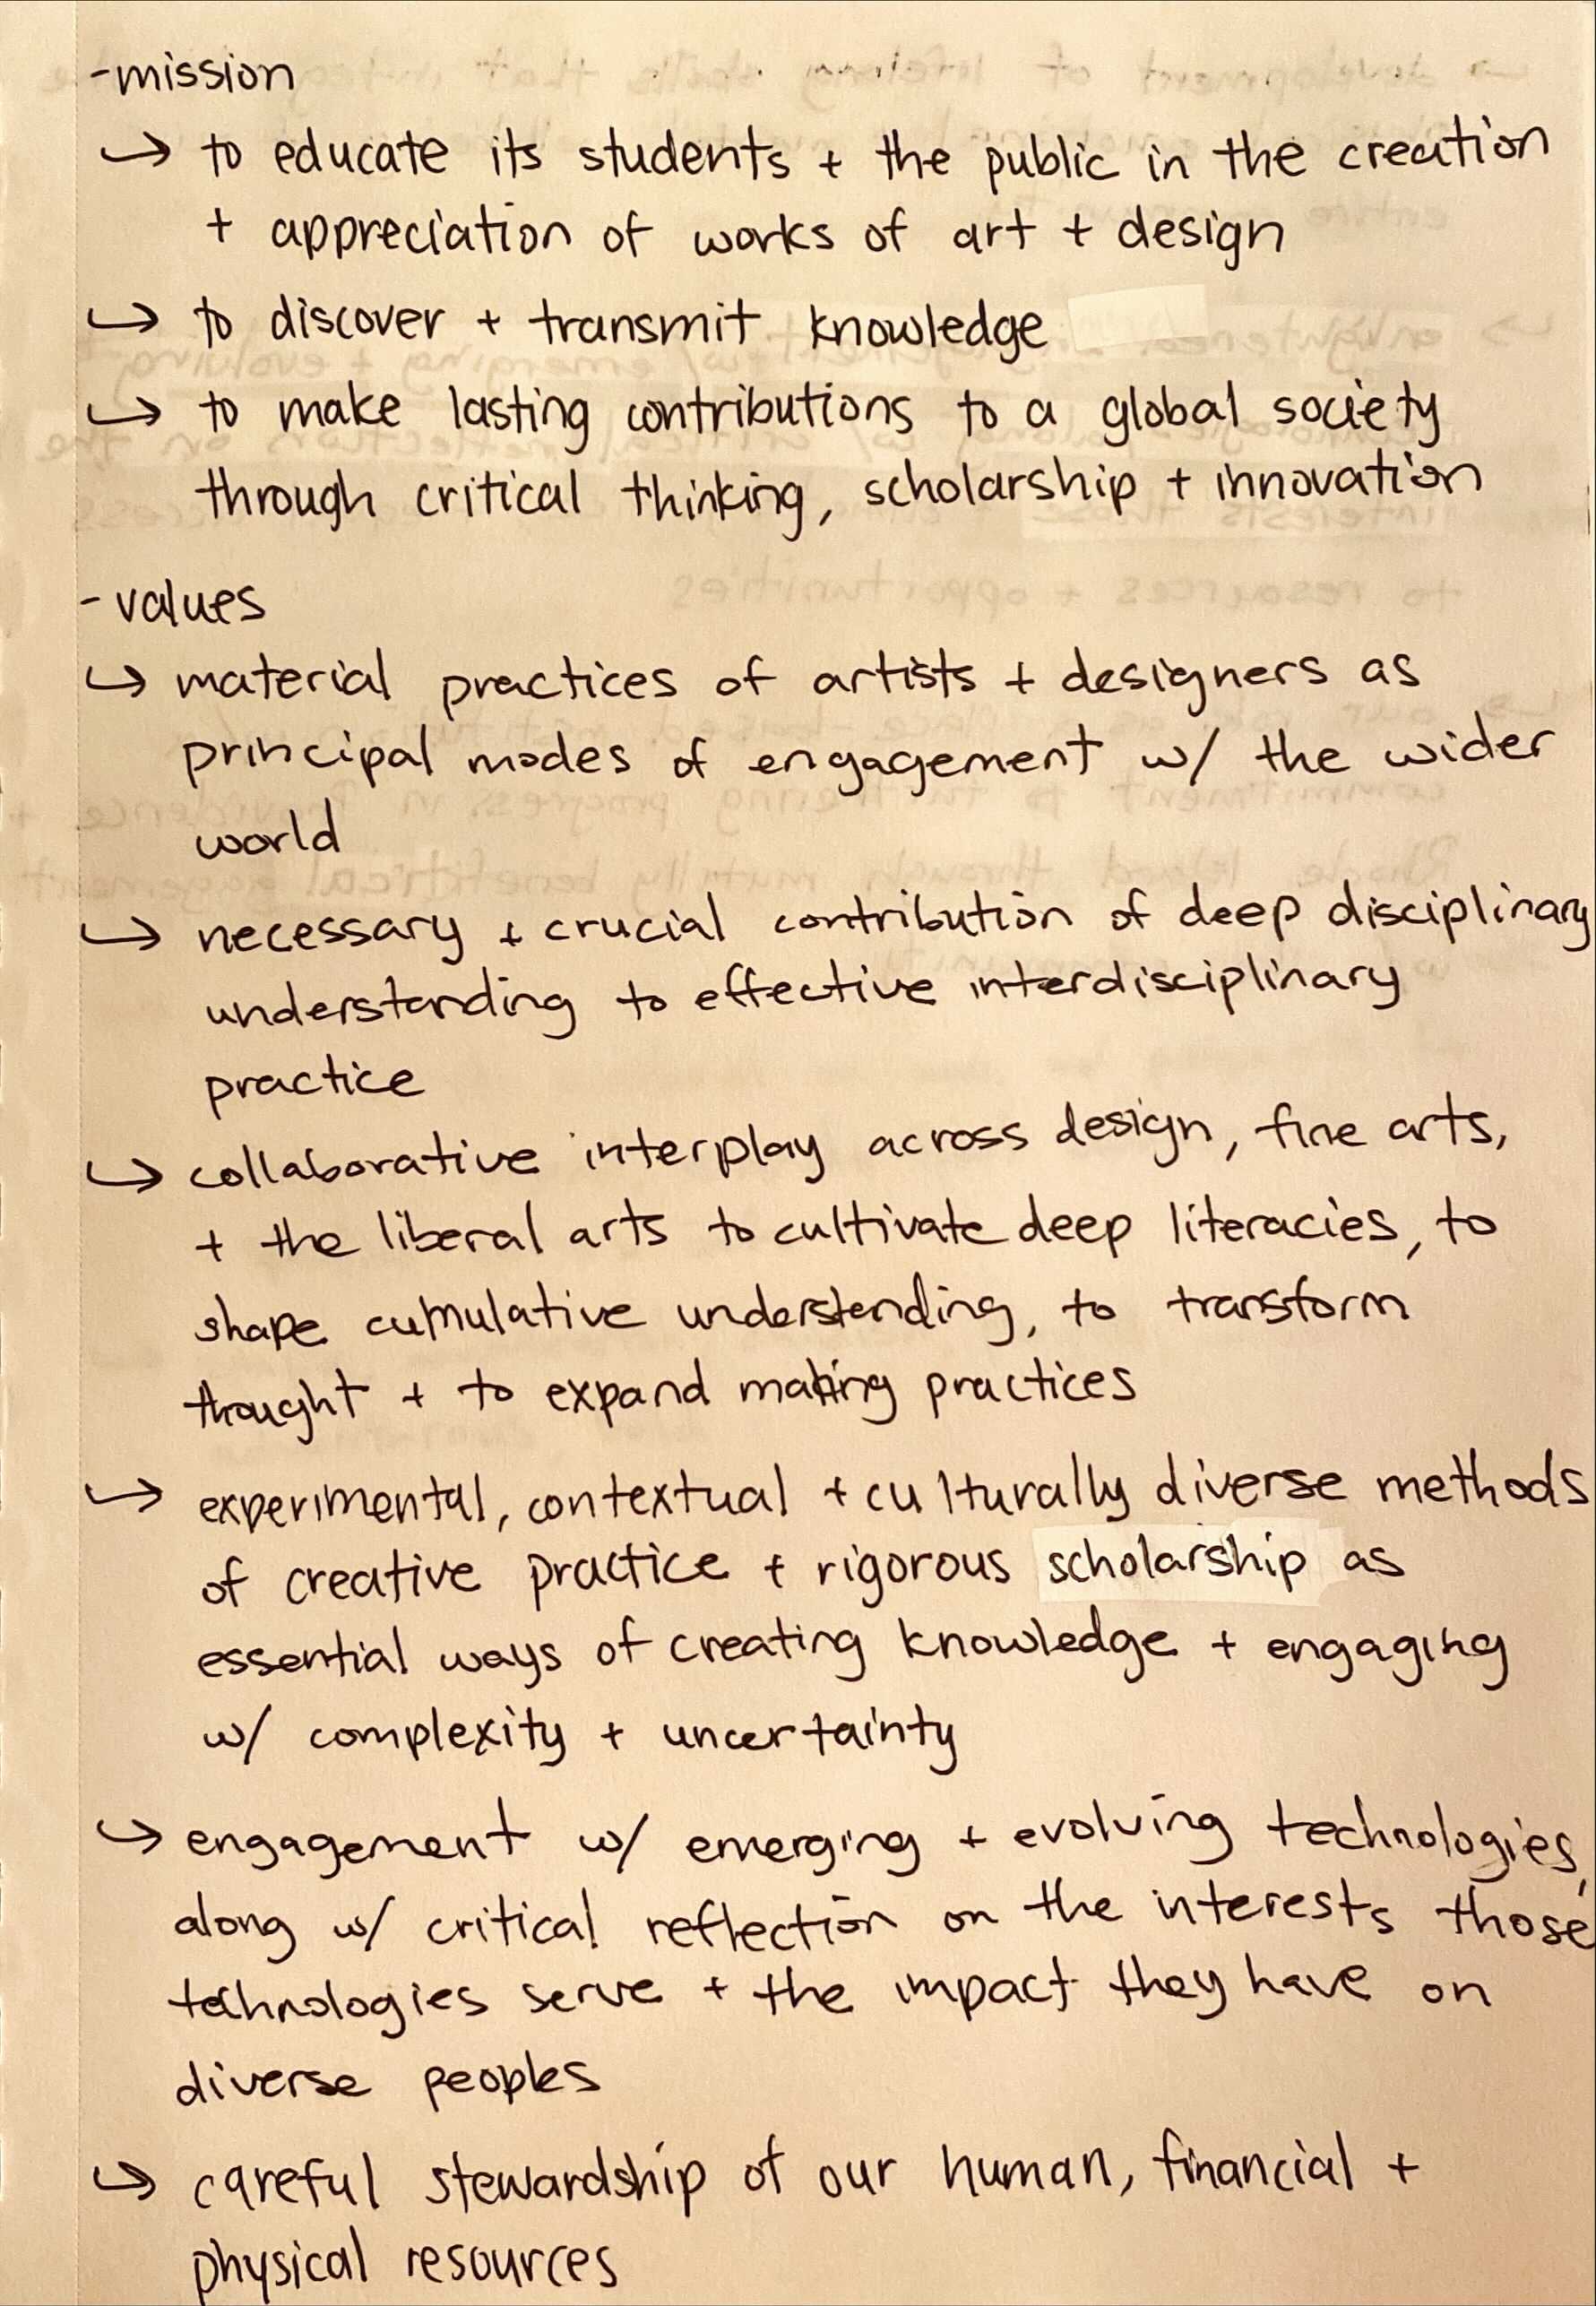 -mission
↪ to educate its students + the public in the creation
+ appreciation of works of art + design
↪ to discover + transmit knowledge
↪ to make lasting contributions to a global society
through critical thinking, scholarship + innovation
-values
↪ material practices of artists + designers as
principal modes of engagement w/ the wider
world
↪ necessary + crucial contribution of deep disciplinary
understanding to effective interdisciplinary
practice
↪ collaborative interplay across design, fine arts,
+ the liberal arts to cultivate deep literacies, to
shape cumulative understanding, to transform
thought + to expand making practices
↪ experimental, contextual + culturally diverse methods
of creative practice + rigorous scholarship as
essential ways of creating knowledge + engaging
w/ complexity + uncertainty
↪ engagement w/ emerging + evolving technologies,
along w/ critical reflection on the interests those
technologies serve + the impact they have on
diverse peoples
↪ careful stewardship of our human, financial +
physical resources